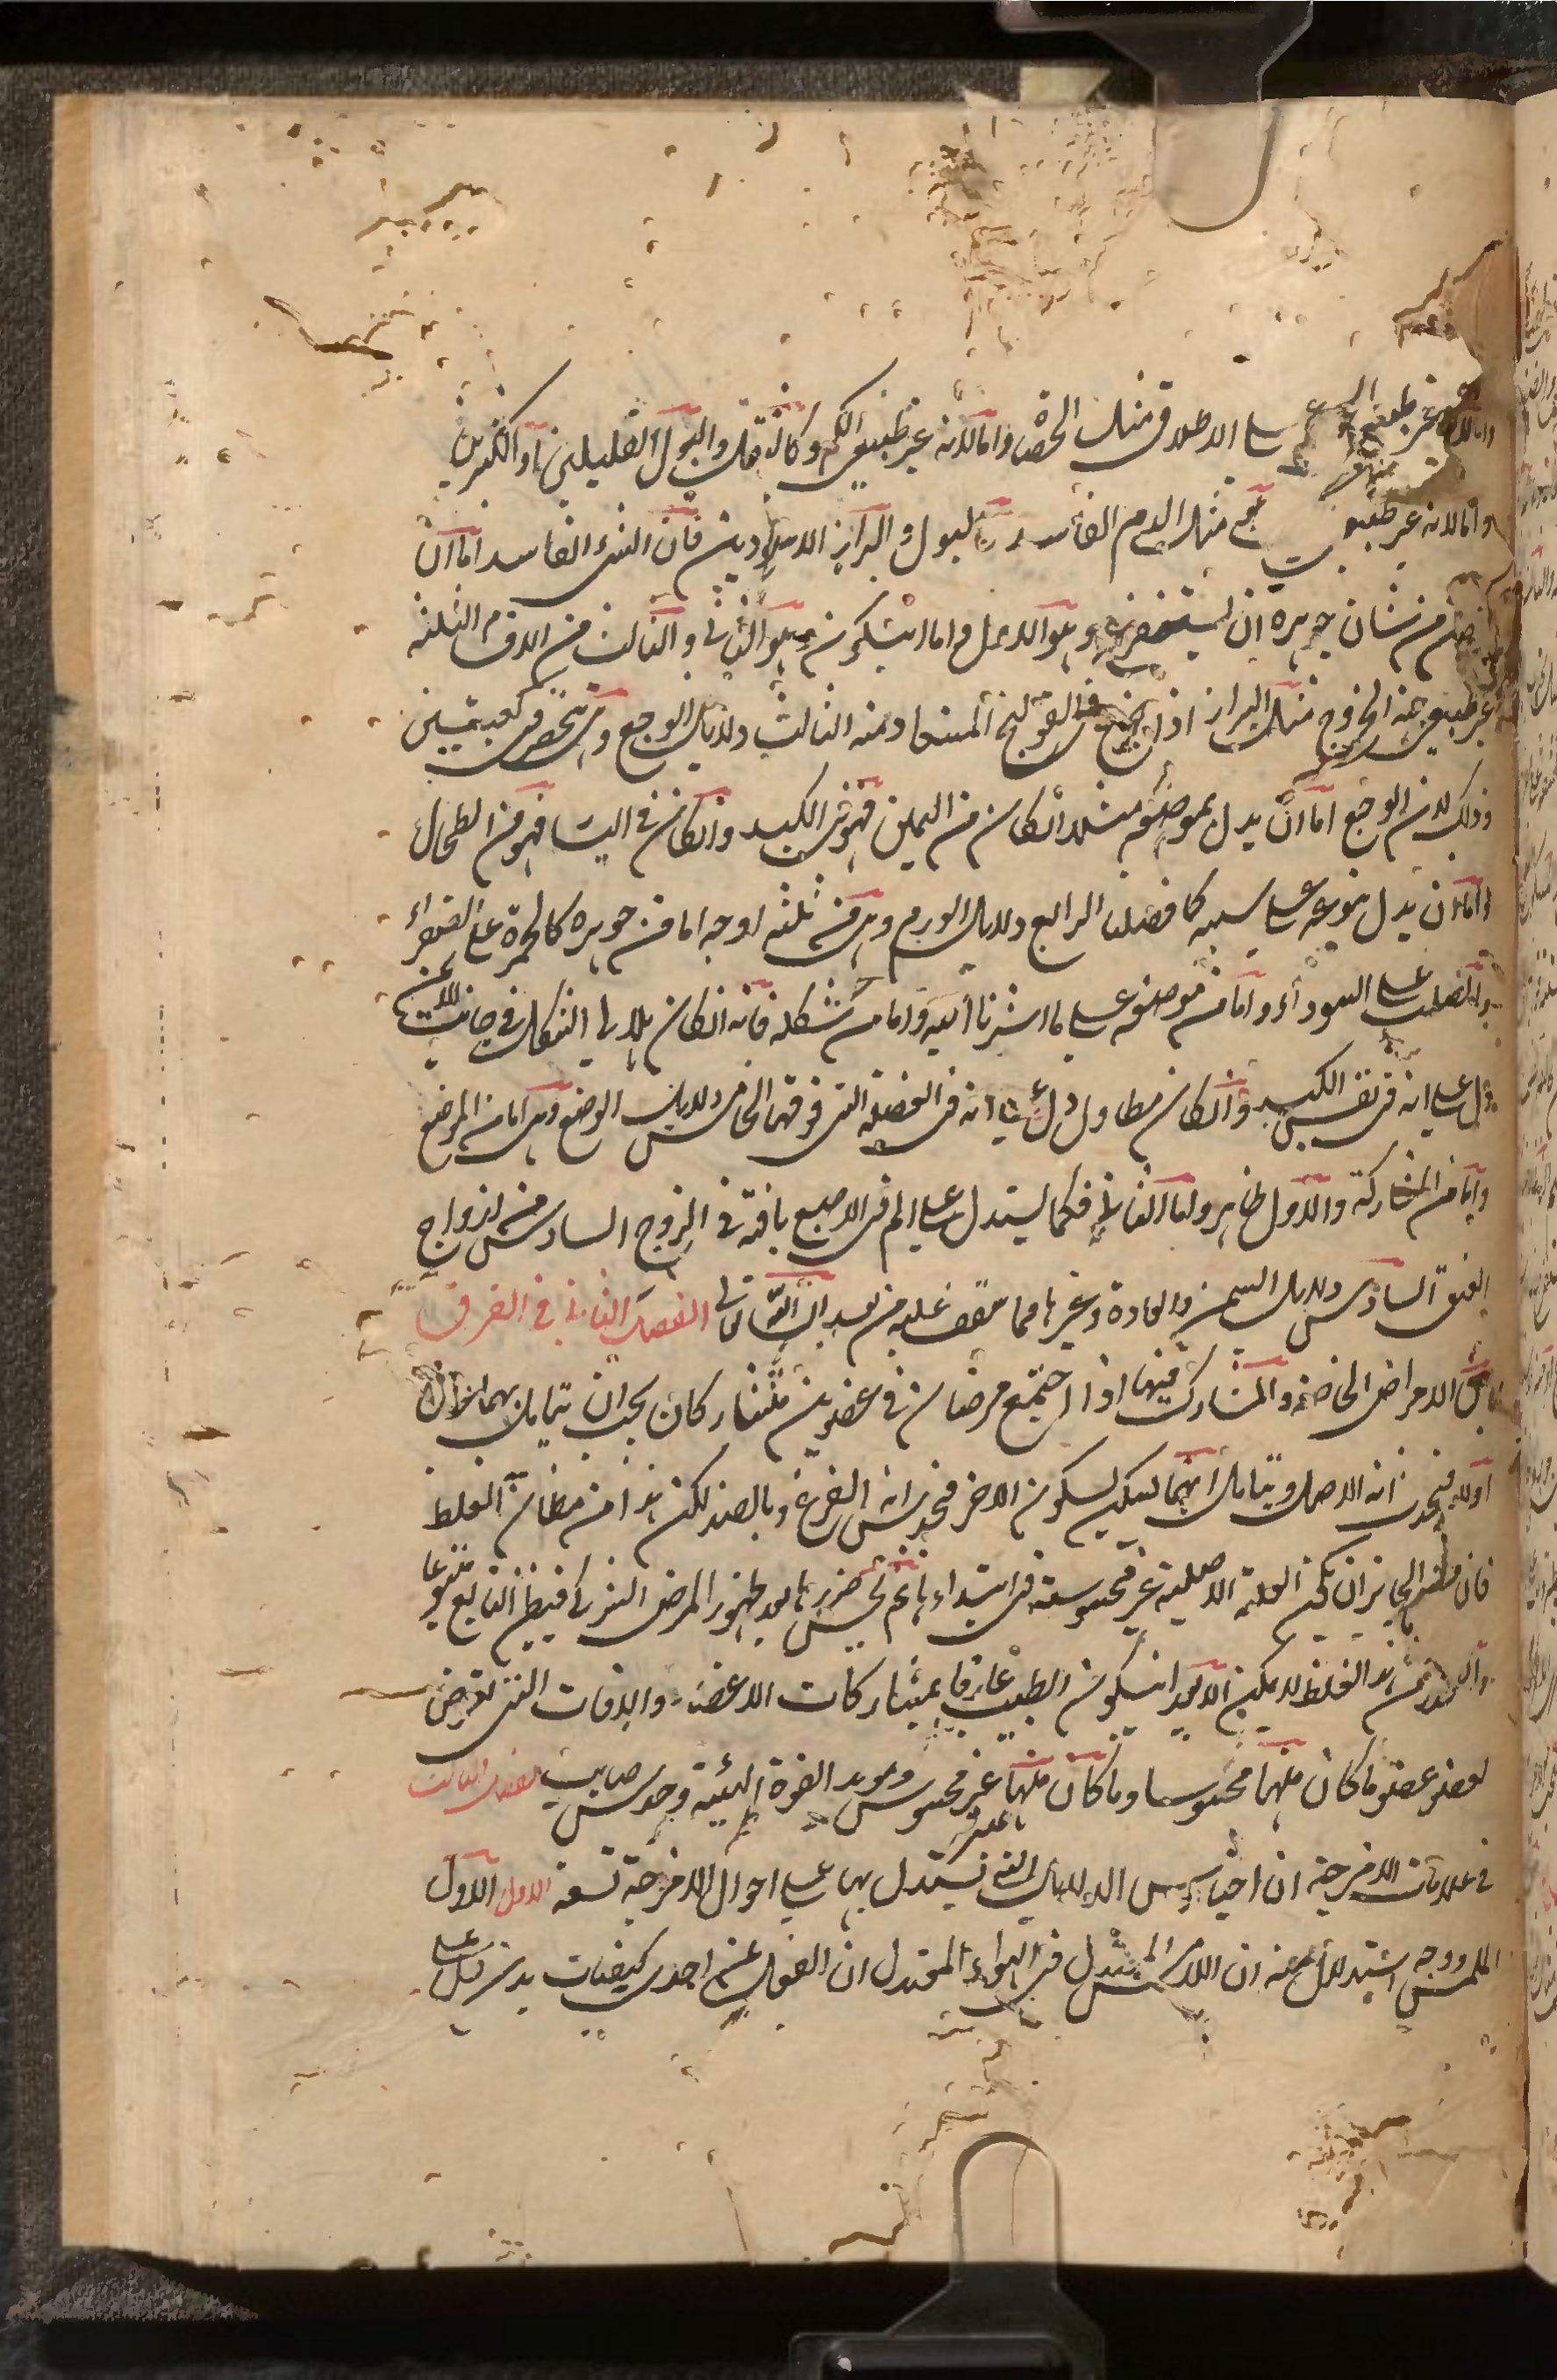 واما لانه غير طبيعي على الاطلاق مثل الحصاة واما لانه غير طبيعي الكم وكالثفل والبول القليلين او الكثيرين
واما لانه غير طبيعي مثل الدم الفاسد والبول والبراز الاسودين فان الشئ الفاسد اما ان
من شان جوهره ان يستفرغ وهو الاول واما ان يكون وهو الثاني والثالث من الاقسام الثلثة
غير طبيعي جهة الخروج مثل البراز اذا خرج في القولنج المستعاد منه الثالث دلايل الوجع وهي تنحصر في جنسين
وذلك لان الوجع اما ان يدل بموضعه مثلا ان كان من اليمين فهو في الكبد وان كان في اليسار فهو في الطحال
واما ان يدل بنوعه على سببه كما فصلنا الرابع دلايل الورم وهي من ثلثة اوجه اما من جوهره كالحمرة على الصفراء
والصلب على السوداء واما من موضعه على ما اشرنا اليه واما من شكله فانه ان كان هلالي الشكل في جانب
دل على انه في نفس الكبد وان كان مطاولا دل على انه في العضلة التي فوقها الخامس دلايل الوضع وهي اما من الموضع
واما من المشاركة والاول ظاهر واما الثاني فكما يستدل على الم في الاصبع بافة في الزوج السادس من ازواج
العنق السادس دلايل السمن والعادة وغيرها مما سنقف عليه من بعد ان شاء الله تعالى الفصل الثاني في الفرق
بين الامراض الخاصة والمشارك فيها اذا اجتمع مرضان في عضوين متشاركان يجب ان يتامل ايهما عرض
اولا فيحدس انه الاصل ويتامل ايهما يسكن بسكون الاخر فيحدس انه الفرع وبالضد لكن هذا من مظان الغلط
فان من الجايز ان تكون العلة الاصلية غير محسوسة في ابتداءها ثم يحس ضررها بعد ظهور المرض الشركي فيظن التابع متبوعا
والتحرز من هذا الغلط لا يمكن الا بعد ان يكون الطبيب عارفا بمشاركات الاعضاء والافات التي تعرض
لعضو عضو ما كان منها محسوسا وما كان منها غير محسوس ومويد القوة الهية وحدس صايب الفصل الثالث
في علامات الامزجة ان اجناس الدلايل التي يستدل بها على احوال الامزجة تسعة الاول الاول
الملمس ووجه استدلال عنه ان اللامس المعتدل في الهواء المعتدل ان انفعل عن احدى كيفيات بدن دل على